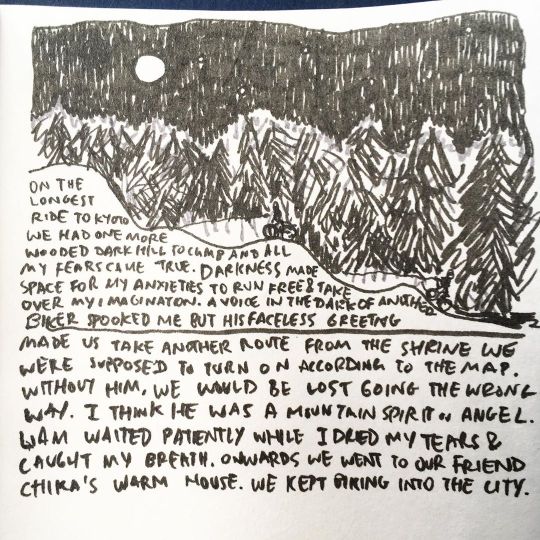 ON THE
LONGEST
RIDE TO KYOTO
WE HAD ONE MORE
WOODED DARK HILL TO CLIMB AND ALL
MY FEARS CAME TRUE. DARKNESS MADE
SPACE FOR MY ANXIETIES TO RUN FREE & TAKE
OVER MY IMAGINATON. A VOICE IN THE DARK OF ANOTHER
BIKER SPOOKED ME BUT HIS FACELESS GREETING
MADE US TAKE ANOTHER ROUTE FROM THE SHRINE WE
WERE SUPPOSED TO TURN ON ACCORDING TO THE MAP.
WITHOUT HIM, WE WOULD BE LOST GOING THE WRONG
WAY. I THINK HE WAS A MOUNTAIN SPIRIT OR ANGEL.
WAM WAITED PATIENTLY WHILE I DRIED MY TEARS &
CAUGHT MY BREATH. ONWARDS WE WENT TO OUR FRIEND
CHIKA'S WARM HOUSE. WE KEPT BIKING INTO THE CITY.